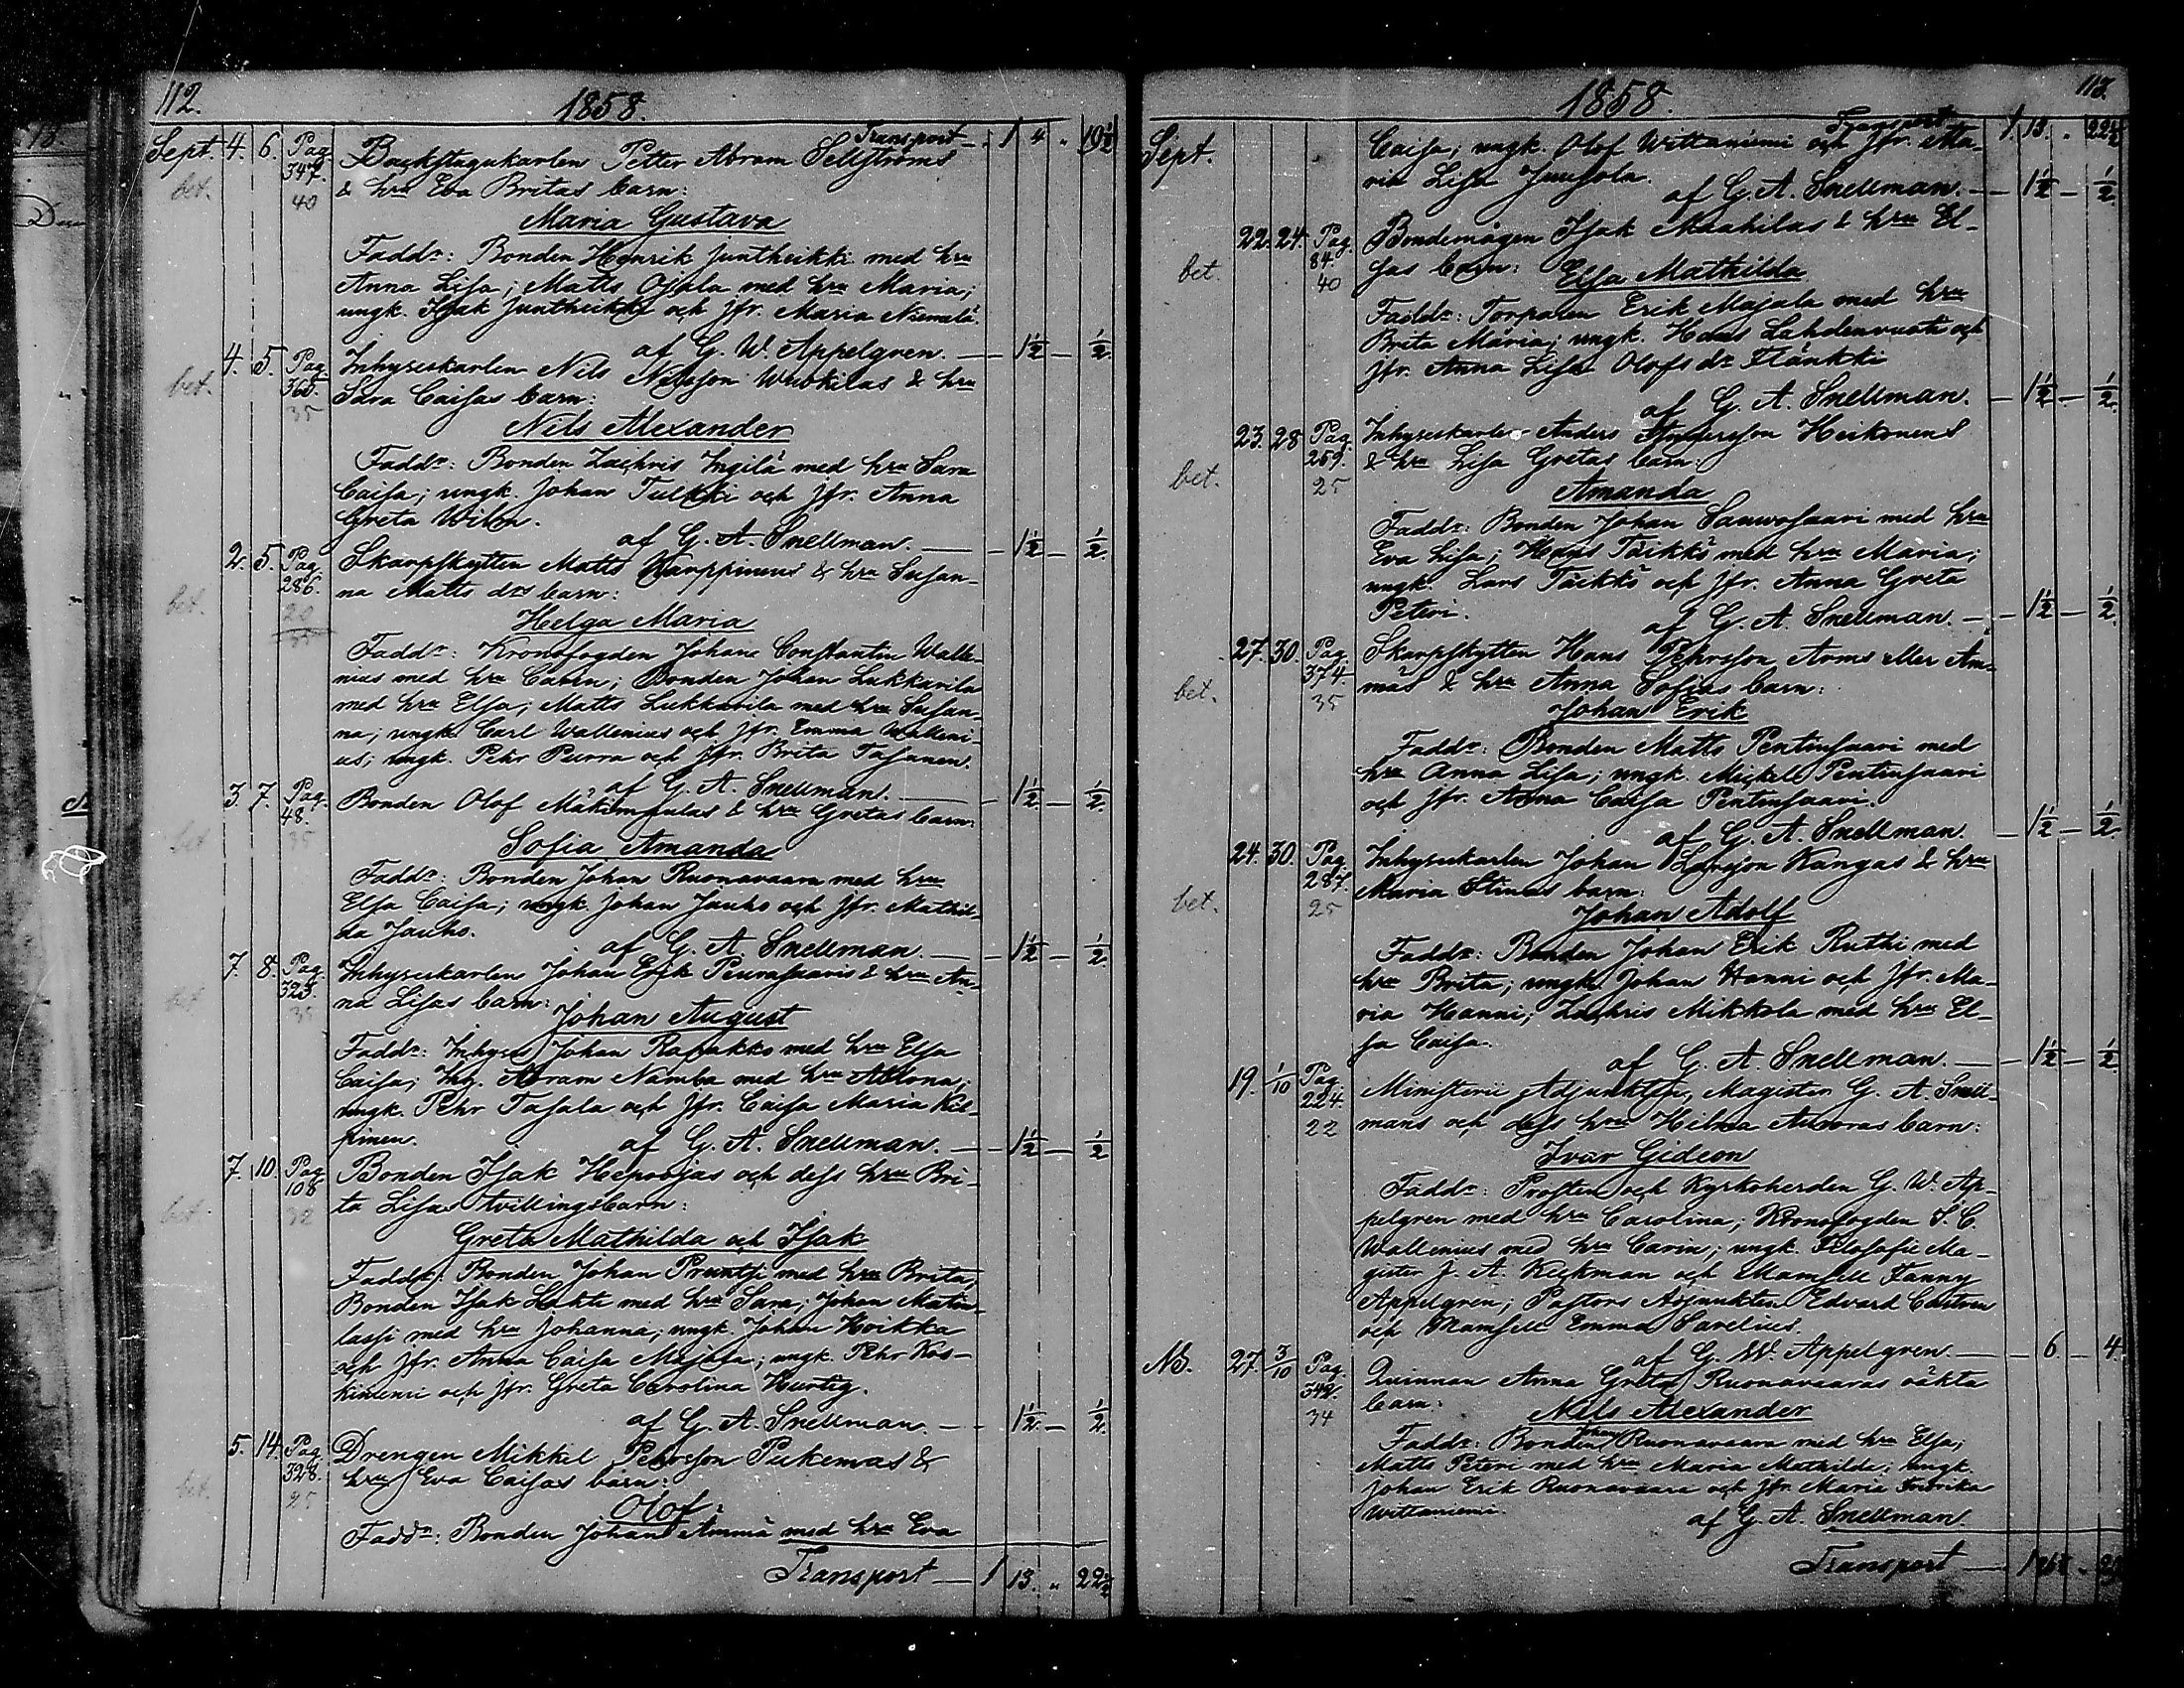 112.
1858.
Transport — 1 4 " 10½
Sept. 4. 6. Pag. 347. Backstugukarlen Petter Abram Sellströms
bet. 40 & hru Eva Britas barn:
Maria Gustava
Faddr: Bonden Henrik Juntheikki med hru
Anna Lisa; Matts Ojala med hru Maria;
ungk. Isak Juntheikki och Jfr. Maria Niemelä.
af G. W. Appelgren. — 1½ — ½
4. 5. Pag. 365. Inhyseskarlen Nils Nilsson Wuokilas & hru
bet. 35 Sara Caisas barn:
Nils Alexander
Faddr: Bonden Zachris Ingilä med hru Sara
Caisa; ungk. Johan Tulkki och Jfr. Anna
Greta Wilen.
af G. A. Snellman. — 1½ — ½
2. 5. Pag. 286. Skarpskytten Matts Karppinens & hru Susan-
bet. na Matts drs barn:
Helga Maria
Faddr: Kronofogden Johan Constantin Walle-
nius med hru Carin; Bonden Johan Lukkarila
med hru Elsa; Matts Lukkarila med hru Susan-
na; ungk. Carl Wallenius och Jfr. Emma Walleni-
us; ungk. Pehr Purra och Jfr. Brita Tasanen.
af G. A. Snellman. — 1½ — ½
3. 7. Pag. 48. Bonden Olof Mäkimpulas & hru Gretas barn:
bet 35 Sofia Amanda
Faddr: Bonden Johan Ruonavaara med hru
Elsa Caisa; ungk. Johan Jauho och Jfr. Mathil-
da Jauho.
af G. A. Snellman. — 1½ — ½
7. 8. Pag. 325. Inhyseskarlen Johan Erik Peurasaaris & hru An-
bet 35 na Lisas barn:
Johan August
Faddr: Inhyses Johan Rasakko med hru Elsa
Caisa; Inh. Abram Namba med hru Albona;
ungk. Pehr Tasala och Jfr. Caisa Maria Kil-
pinen.
af G. A. Snellman. — 1½ — ½
7. 10. Pag 108 Bonden Isak Hepoojas och dess hru Bri-
bet. 32 ta Lisas tvillingsbarn:
Greta Mathilda och Isak
Faddr: Bonden Johan Pruntsi med hru Brita;
Bonden Isak Lahti med hru Sara; Johan Matin-
lassi med hru Johanna; ungk. Johan Hoikka
och Jfr. Anna Caisa Majava; ungk. Pehr Kos-
kiniemi och Jfr. Greta Carolina Hurtig.
af G. A. Snellman. — 1½ — ½
5. 14. Pag. 328. Drengen Mikkel Pehrsson Pukemas &
bet. 25 hru Eva Caisas barn:
Olof:
Faddr: Bonden Johan Ammä med hru Eva
Transport — 1 13. " 22½
113.
1858.
Transport 1. 13. " 22½
Sept. Caisa; ungk. Olof Wittaniemi och Jfr. Ma-
ria Lisa Juusola.
af G. A. Snellman. — 1½ — ½
22. 24. Pag. 84. Bondemågen Isak Maahilas & hru El-
bet. 40 sas barn: Elsa Mathilda
Faddr: Torparen Erik Majala med hru
Brita Maria; ungk. Hans Lahdenvuoti och
Jfr. Anna Lisa Olofs dr Flänkki
af G. A. Snellman. — 1½ — ½
23. 28 Pag 259. Inhyseskarlen Anders Andersson Heikonens
bet. 25 & hru Lisa Gretas barn:
Amanda
Faddr: Bonden Johan Sauwosaari med hru
Eva Lisa; Hans Täikkö med hru Maria;
ungk. Lars Täikkö och Jfr. Anna Greta
Peteri.
af G. A. Snellman. — 1½ — ½
27. 30. Pag. 374. Skarpskytten Hans Pehrsson Arms eller Am-
bet. 35 mäs & hru Anna Sofias barn:
Johan Erik
Faddr: Bonden Matts Pentinsaari med
hru Anna Lisa; ungk. Mickel Pentinsaari
och Jfr. Anna Caisa Pentinsaari.
af G. A. Snellman. — 1½ — ½
24. 30. Pag 287. Inhyseskarlen Johan Larsson Kangas & hru
bet. 25 Maria Stinas barn:
Johan Adolf
Faddr: Bonden Johan Erik Ruthi med
hru Brita; ungk. Johan Hanni och Jfr. Ma-
ria Hanni; Zachris Mikkola med hru El-
sa Caisa.
af G. A. Snellman. — 1½ — ½
19. 1/10 Pag. 224. Ministerii Adjunkten, Magister G. A. Snell-
22 mans och dess hru Hilma Auroras barn:
Ivar Gideon
Faddr: Prosten och Kyrkoherden G. W. Ap-
pelgren med hru Carolina; Kronofogden J. C.
Wallenius med hru Carin; ungk. Filosofie Ma-
gister J. A. Keckman och Mamsell Fanny
Appelgren; Pastors Adjunkten Edvard Castren
och Mamsell Emma Sarelius.
af G. W. Appelgren — 6. — 4.
NB. 27. 3/10 Pag. 342. Qvinnan Anna Greta Ruonavaaras oäkta
34 barn: Nils Alexander
Faddr: Bonden Johan Ruonavaara med hru Elsa;
Matts Peteri med hru Maria Mathilda; ungk.
Johan Erik Ruonavaara och Jfr Maria Fredrika
Wittaniemi.
af G. A. Snellman
Transport —